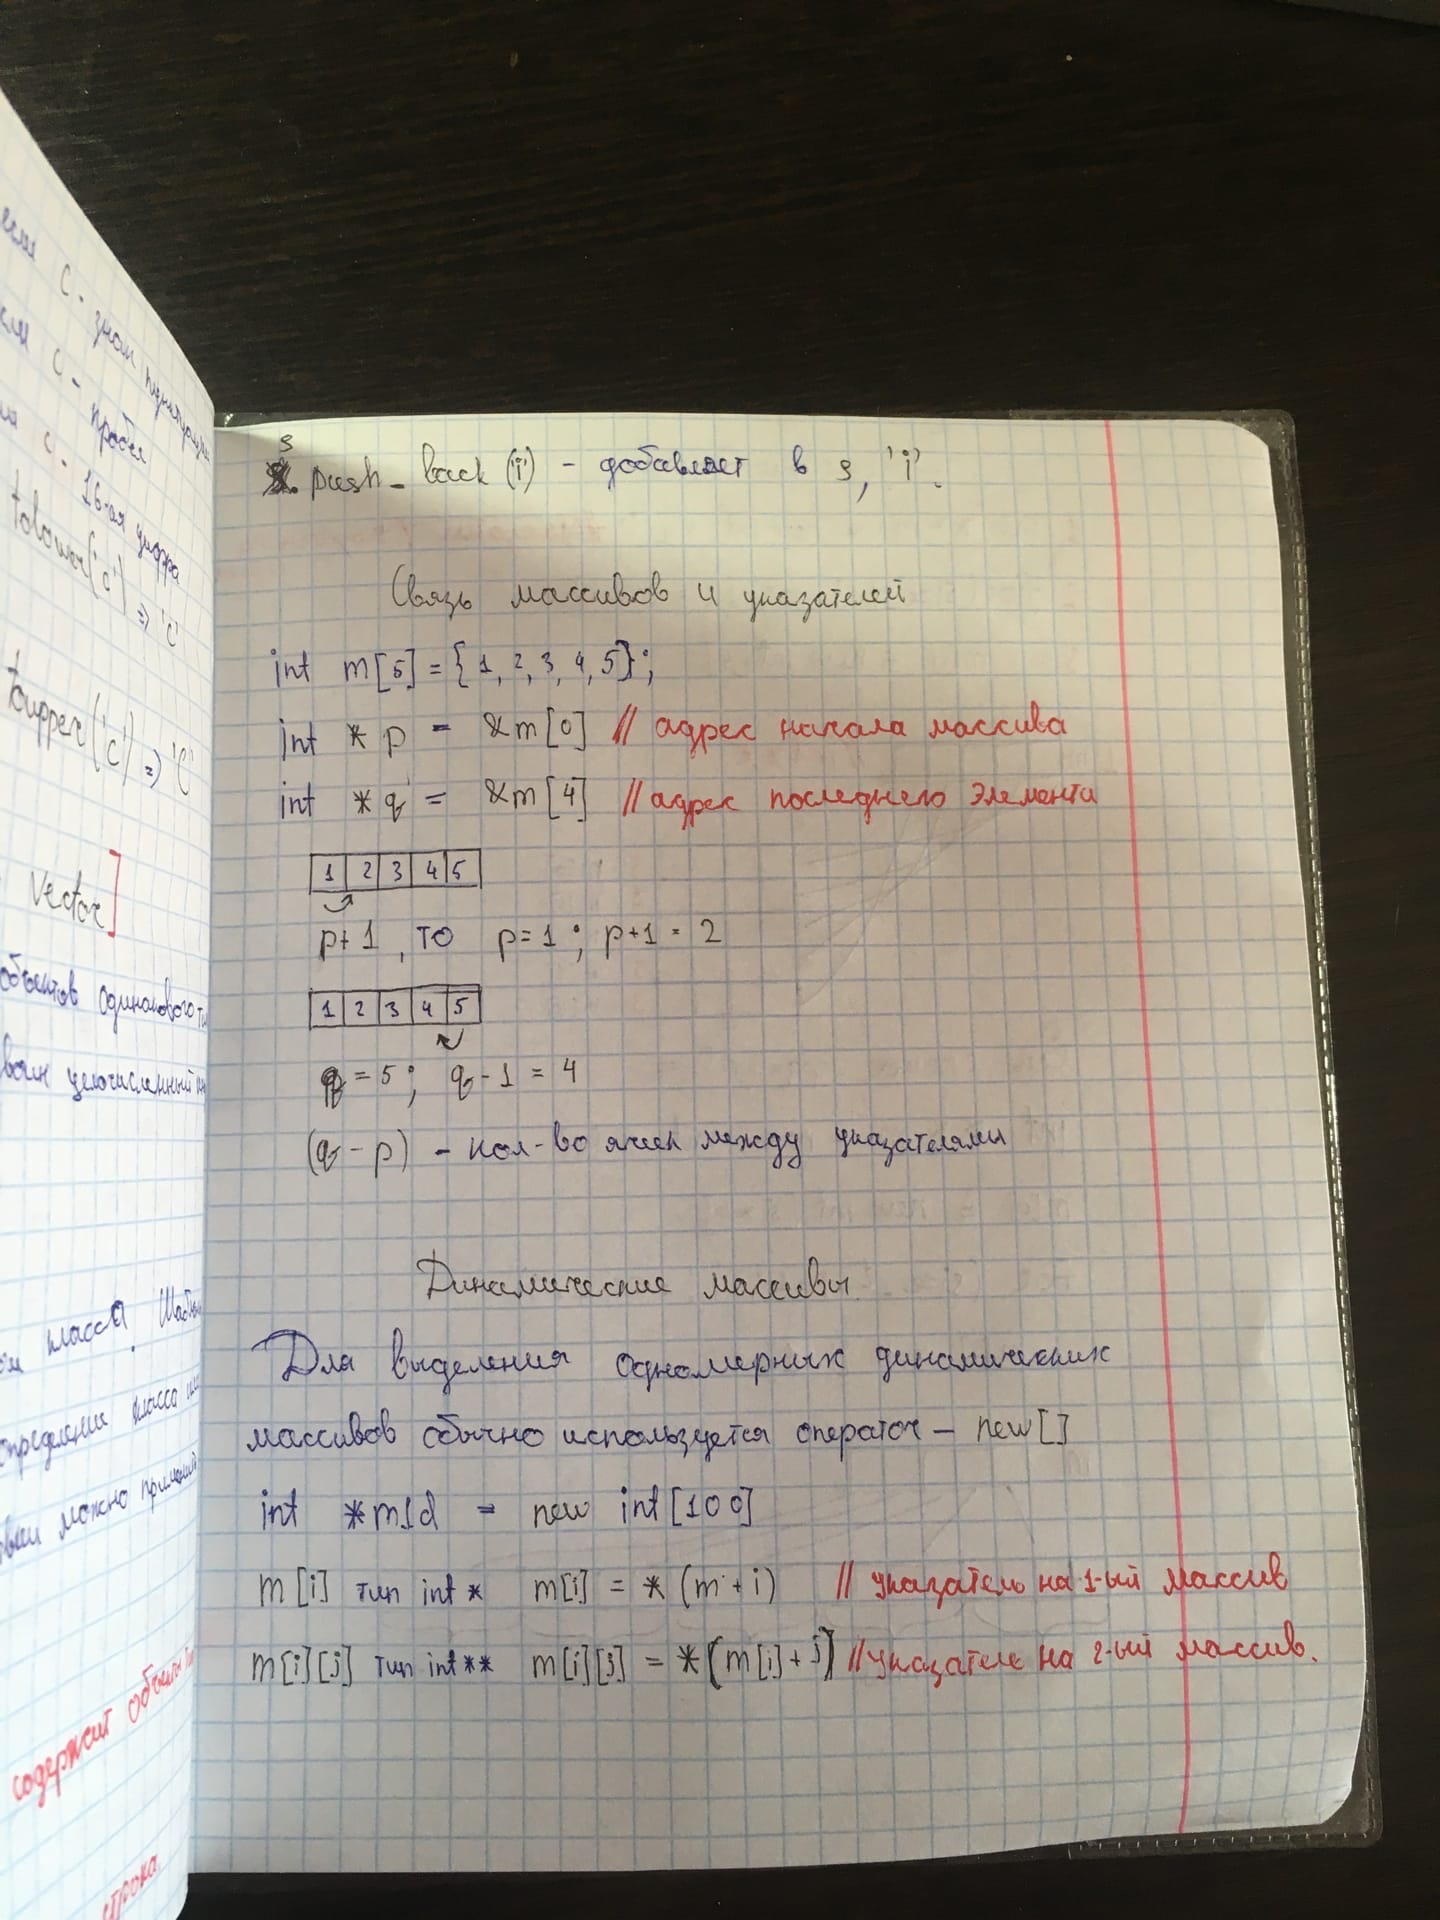 если с - знак пунктуации
если с - пробел
если с - 16-ая цифра
tolower('c') => 'c'
toupper('c') => 'C'
vector]
объектов одинакового
целочисленный
класса. Шаблон
определения класса
можно
содержит объекты
строка
s
s. push_back('i') - добавляет в s, 'i'.
Связь массивов и указателей
int m[5] = {1, 2, 3, 4, 5};
int *p = &m[0] // адрес начала массива
int *q = &m[4] // адрес последнего элемента
1 2 3 4 5
p+1, то p=1; p+1 = 2
1 2 3 4 5
q = 5; q - 1 = 4
(q - p) - кол-во ячеек между указателями
Динамические массивы.
Для выделения одномерных динамических
массивов обычно используется оператор - new[]
int *m1d = new int[100]
m[i] тип int* m[i] = *(m + i) // указатель на 1-ый массив
m[i][j] тип int** m[i][j] = *(m[i]+j) // указателе на 2-ый массив.